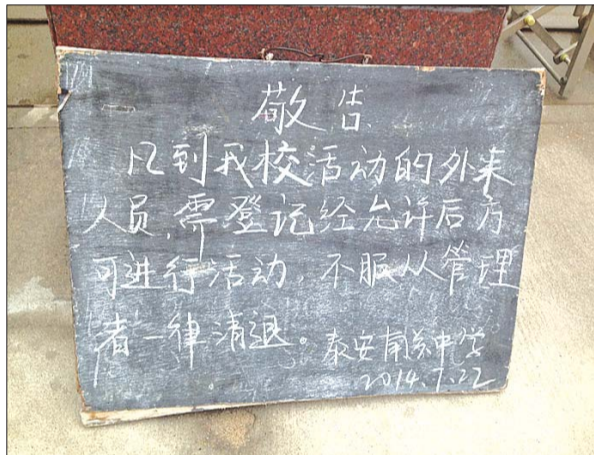 敬告
凡到我校活动的外来
人员,需登记经允许后方
可进行活动,不服从管理
者一律清退。泰安南关中学
2014.7.22